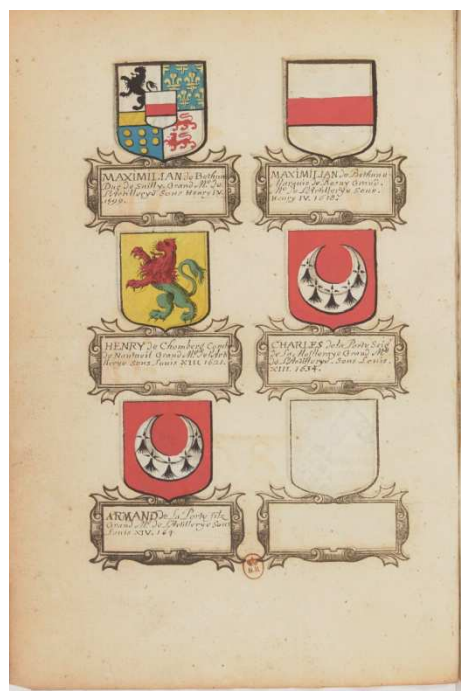 MAXIMILIAN de Bethune
Duc de Suilly Grand Mᵉ. de
l'Artilleryé Sous Henry IV.
1599.
MAXIMILIAN de Bethune
Marquis de Rosny Grand
Mᵉ. de l'Artillerye Sous
Henry IV. 1610.
HENRY de Chomberg Comte
de Nantueil Grand Mᵉ. de l'Arti
llerye Sous Louis XIII. 1621.
CHARLES de la Porte Seigʳ
de la Mellerays Grand Mᵉ
de l'Artillerye Sous Louis
XIII. 1634.
ARMAND de La Porte fils
Grand Mᵉ. de l'Artillerye Sous
Louis XIV. 164